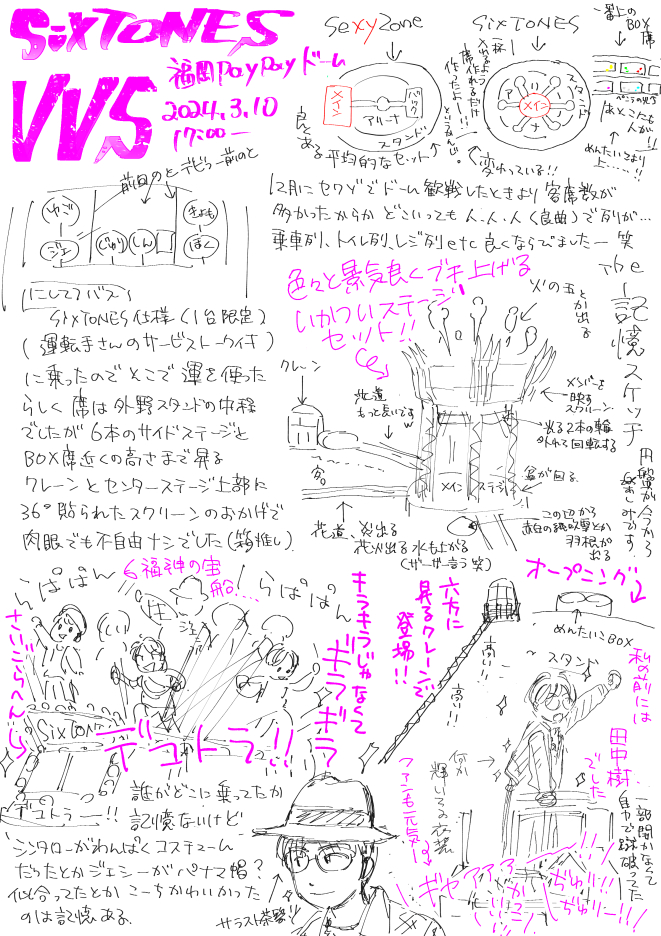 SixTONES
VVS
福岡PayPayドーム
2024.3.10
17:00ー
SexyZone
メイン
バック
アリーナ
スタンド
良くある平均的なセット
SixTONES
メイン
アリーナ
スタンド
変わっている!!
一番上のBOX席
12月にセクゾでドーム観戦したときより客席数が
多かったからかどこいっても人、人、人(良曲)で列が…
乗車列、トイレ列、レジ列etc良くならびましたー笑
前回のとデビュー前のと
ゆご
ジェ
じゅり
しん
きょも
ほく
にしてつバス
SixTONES仕様(1台限定)
(運転手さんのサービストークイイ)
に乗ったのでそこで運を使った
らしく席は外野スタンドの中程
でしたが6本のサイドステージと
BOX席近くの高さまで昇る
クレーンとセンターステージ上部に
36°貼られたスクリーンのおかげで
肉眼でも不自由ナシでした(箱推し)
色々と景気良くブチ上げる
いかついステージ
セット!!
火の玉とか出る
The記憶スケッチ
クレーン
花道
もっと長いですw
メンバーを
映す
スクリーン
光る2本の輪
外れて回転する
メインステージ
盆が回る
客。
花道 炎出る
花火出る 水も上がる
(ザーザー言う 笑)
この辺から
羽根が
出る
円盤が今から
楽しみです!
らぱぱん
6福神の宝
船....
らぱぱん
さいこらへん!!
SixTONES
デコトラ!!
キラキラじゃなくて
ギラギラ
六方に
昇るクレーンで
登場!!
高い!!
高い!!
オープニング
めんたいこBOX
スタンド
私の前には
田中樹
でした
何か
輝いてる衣装
ファンも元気!
デコトラー!!
誰がどこに乗ってたか
記憶ないけど
シンタローがわんぱくコスチューム
だったとかジェシーがパナマ帽?
似合ってたとかこーちかわいかった
のは記憶ある。
ギャアアアー!!!
じゅり!!
じゅりー!!!